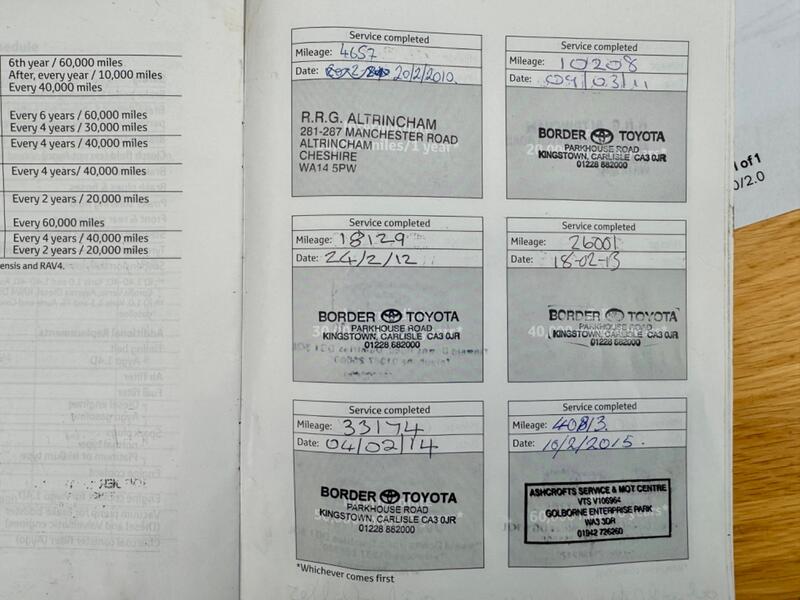 6th year / 60,000 miles
After, every year / 10,000 miles
Every 40,000 miles
Every 6 years / 60,000 miles
Every 4 years / 30,000 miles
Every 4 years / 40,000 miles
Every 4 years/ 40,000 miles
Every 2 years / 20,000 miles
Every 60,000 miles
Every 4 years / 40,000 miles
Every 2 years / 20,000 miles
ensis and RAV4.
Service completed
Mileage: 4657
Date: 20/2/2010.
R.R.G. ALTRINCHAM
281-287 MANCHESTER ROAD
ALTRINCHAM
CHESHIRE
WA14 5PW
Service completed
Mileage: 10208
Date: 09/03/11
BORDER TOYOTA
PARKHOUSE ROAD
KINGSTOWN, CARLISLE CA3 0JR
01228 882000
Service completed
Mileage: 18129
Date: 24/2/12
BORDER TOYOTA
PARKHOUSE ROAD
KINGSTOWN, CARLISLE CA3 0JR
01228 882000
Service completed
Mileage: 26001
Date: 18-02-13
BORDER TOYOTA
PARKHOUSE ROAD
KINGSTOWN, CARLISLE CA3 0JR
01228 882000
Service completed
Mileage: 33174
Date: 04/02/14
BORDER TOYOTA
PARKHOUSE ROAD
KINGSTOWN, CARLISLE CA3 0JR
01228 882000
Service completed
Mileage: 40813
Date: 10/2/2015.
ASHCROFTS SERVICE & MOT CENTRE
VTS V106964
GOLBORNE ENTERPRISE PARK
WA3 3DR
01942 726260
*Whichever comes first
1 of 1